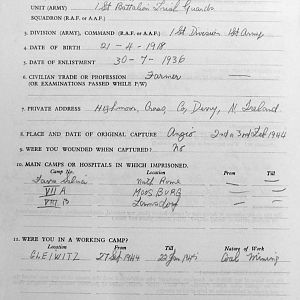 UNIT (ARMY) 1st Battalion Irish Guards
SQUADRON (R.A.F. or A.A.F.)
3. DIVISION (ARMY), COMMAND (R.A.F. or A.A.F.) 1st Division 1st Army
4. DATE OF BIRTH 21-4-1918
5. DATE OF ENLISTMENT 30-7-1936
6. CIVILIAN TRADE OR PROFESSION Farmer
(OR EXAMINATIONS PASSED WHILE P/W)
7. PRIVATE ADDRESS Highmoor, Cross, Co, Derry, N. Ireland
8. PLACE AND DATE OF ORIGINAL CAPTURE Anzio 2nd n 3rd Feb 1944
9. WERE YOU WOUNDED WHEN CAPTURED? No
10. MAIN CAMPS OR HOSPITALS IN WHICH IMPRISONED.
Camp No. Location From Till
North Rome — —
VII A MOOSBURG — —
VIII B Lamsdorf — —
11. WERE YOU IN A WORKING CAMP?
Location From Till Nature of Work
GLEIWITZ 27 Sep 1944 22 Jan 1945 Coal Mining